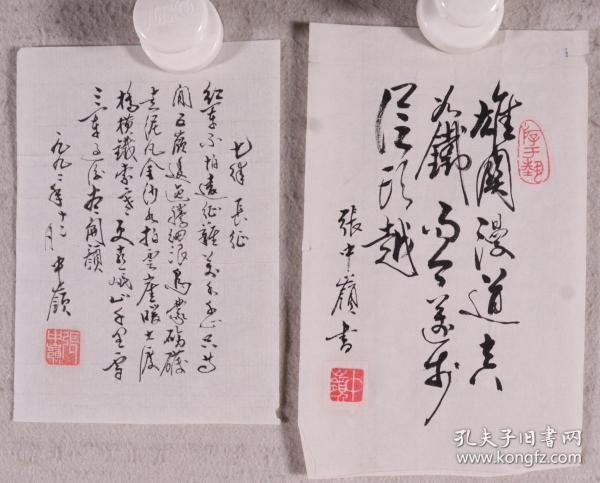 七律 長征
紅軍不怕遠征難萬水千山只等
閒五嶺逶迤騰細浪烏蒙磅礴
走泥丸金沙水拍雲崖暖大渡
橋橫鐵索寒更喜岷山千里雪
三軍過後盡開顏
一九九二年十二月 中嶺
張中嶺
雄關漫道真
如鐵而今邁步
從頭越
張中嶺書
中嶺
孔夫子旧书网
www.kongfz.com